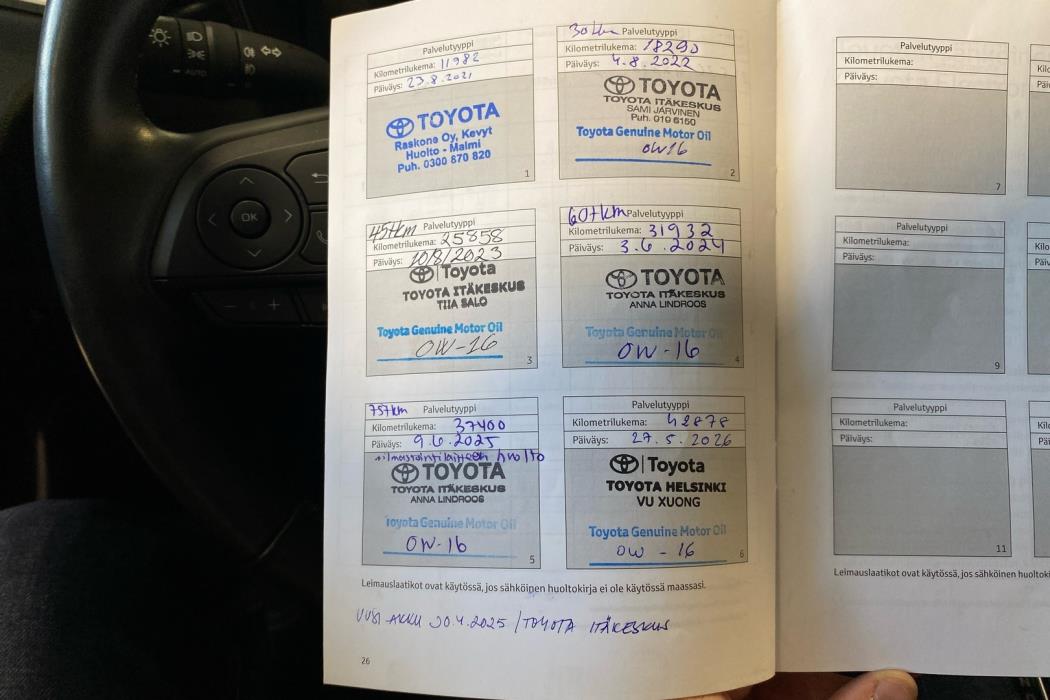 Palvelutyyppi
Kilometrilukema: 11982
Päiväys: 23.8.2021
TOYOTA
Raskone Oy, Kevyt
Huolto - Malmi
Puh. 0300 870 820
1
Palvelutyyppi
Kilometrilukema: 18290
Päiväys: 4.8.2022
TOYOTA
TOYOTA ITÄKESKUS
SAMI JÄRVINEN
Puh. 010 6150
Toyota Genuine Motor Oil
0W16
2
45tkm Palvelutyyppi
Kilometrilukema: 25858
Päiväys: 10/8/2023
Toyota
TOYOTA ITÄKESKUS
TIIA SALO
Toyota Genuine Motor Oil
0W-16
3
60tkm Palvelutyyppi
Kilometrilukema: 31932
Päiväys: 3.6.2024
TOYOTA
TOYOTA ITÄKESKUS
ANNA LINDROOS
Toyota Genuine Motor Oil
0W-16
4
75tkm Palvelutyyppi
Kilometrilukema: 37400
Päiväys: 9.6.2025
+ilmastointilaitteen huolto
TOYOTA
TOYOTA ITÄKESKUS
ANNA LINDROOS
Toyota Genuine Motor Oil
0W-16
5
Palvelutyyppi
Kilometrilukema: 42878
Päiväys: 27.5.2026
Toyota
TOYOTA HELSINKI
VU XUONG
Toyota Genuine Motor Oil
0W - 16
6
Leimauslaatikot ovat käytössä, jos sähköinen huoltokirja ei ole käytössä maassasi.
UUSI AKKU 30.4.2025 / TOYOTA ITÄKESKUS
26
Palvelutyyppi
Kilometrilukema:
Päiväys:
7
Palvelutyyppi
Kilometrilukema:
Päiväys:
9
Palvelutyyppi
Kilometrilukema:
Päiväys:
11
Leimauslaatikot ovat käytössä, jos sähköinen
OK
AUTO